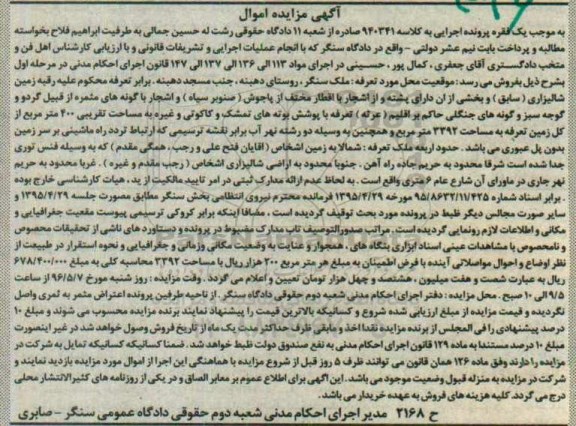 آگهی مزایده اموال
به موجب یک فقره پرونده اجرایی به کلاسه ۹۴۰۳۴۱ صادره از شعبه ۱۱ دادگاه حقوقی رشت له حسین جمالی به طرفیت ابراهیم فلاح بخواسته
مطالبه و پرداخت بابت نیم عشر دولتی – واقع در دادگاه سنگر که با انجام عملیات اجرایی و تشریفات قانونی و با ارزیابی کارشناس اهل فن و
منتخب دادگستری آقای جعفری ، کمال پور ، حسینی در اجرای مواد ۱۱۳ الی ۱۳۶ الی ۱۳۷ الی ۱۴۷ قانون اجرای احکام مدنی در مرحله اول
بشرح ذیل بفروش می رسد : موقعیت محل مورد تعرفه : ملک سنگر ، روستای دهینه ، جنب مسجد دهینه . برابر تعرفه محکوم علیه رقبه زمین
شالیزاری ( سابق ) و بخشی از ان دارای پشته و از اشجار با اقطار مختلف از پاجوش ( صنوبر سیاه ) و اشجار با گونه های مثمره از قبیل گردو و
گوجه سبز و گونه های جنگلی حاکم بر اقلیم ( عرفه ) تعرفه با پوشش بوته های تمشک و کاکوتی و غیره به مساحت تقریبی ۴۰۰ متر مربع از
کل زمین تعرفه به مساحت ۳۳۹۲ متر مربع و همچنین به وسیله دو رشته نهر آب برابر نقشه ترسیمی که ارتباط تردد راه ماشینی بر سر زمین
بدون پل عبوری می باشد . حدود اربعه ملک تعرفه : شمالا به زمین اشخاص ( اقایان فتح علی و رجب ، همگی مقدم ) که به وسیله فنس توری
جدا شده است شرقا محدود به حریم جاده راه آهن . جنوبا محدود به اراضی شالیزاری اشخاص ( رجب مقدم و غیره ) . غربا محدود به حریم
نهر جاری در ماورای آن شارع عام ۶ متری واقع است . به لحاظ عدم ارائه مدارک ثبتی در امر تایید مالکیت از ید ، هیات کارشناسی خارج بوده
. برابر اسناد شماره ۹۵/۸۶۳۲/۱۱/۴۲۵ مورخه ۱۳۹۵/۴/۲۹ فرمانده محترم نیروی انتظامی بخش سنگر مطابق مصورت جلسه ۱۳۹۵/۴/۲۹ و
سایر صورت مجالس دیگر ظبط در پرونده مورد بحث توقیف گردیده است . مضافا اینکه برابر کروکی ترسیمی پیوست مقعیت جغرافیایی و
مکانی و اطلاعات لازم رونمایی گردیده است . مراتب صدورالتوصیف تاب مدارک مضبوط در پرونده و دستاورد های ناشی از تحقیقات مخصوص
و نامحصوص با مشاهدات عینی اسناد ابزاری بنگاه های ، همجوار و عنایت به وضعیت مکانی وزمانی و جغرافیایی و نحوه استقرار در طبیعت از
نظر اوضاع و احوال مواصلاتی آینده با فرض اطمینان به مبلغ هر متر مربع ۲۰۰ هزار ریال با مساحت ۳۳۹۲ محاسبه کلی به مبلغ ۶۷۸/۴۰۰/۰۰۰
ریال به عبارت شصت و هفت میلیون ، هشتصد و چهل هزار تومان تعیین و اعلام می گردد . وقت مزایده : روز شنبه مورخ ۹۶/۵/۷ از ساعت
۹/۵ الی ۱۰ صبح . محل مزایده : دفتر اجرای احکام مدنی شعبه دوم حقوقی دادگاه سنگر . از ناحیه طرفین پرونده اعتراض مثمر به ثمری واصل
نگردیده و قیمت مزایده از مبلغ ارزیابی شده شروع و کسانیکه بالاترین قیمت را پیشنهاد نمایند برنده مزایده محسوب می شوند و مبلغ ۱۰
درصد پیشنهادی را فی المجلس از برنده مزایده نقدا اخذ و مابقی ظرف حداکثر مدت یک ماه از تاریخ فروش وصول خواهد شد در غیر اینصورت
مبلغ ۱۰ درصد مستندا به ماده ۱۲۹ قانون اجرای احکام مدنی به نفع صندوق دولت ظبط خواهد شد . ضمنا کسانیکه کسانیکه تمایل به شرکت در
مزایده را دارند وفق ماده ۱۲۶ همان قانون می توانند ظرف ۵ روز قبل از شروع مزایده با هماهنگی این اجرا از اموال مورد مزایده بازدید نمایند و
شرکت در مزایده به منزله قبول وضعیت موجود می باشد . این آگهی برای اطلاع عموم بر معابر الصاق و در یکی از روزنامه های کثیرالانتشار محلی
درج می گردد. کلیه هزینه های فروش به عهده خریدار می باشد .
ح ۲۱۶۸ مدیر اجرای احکام مدنی شعبه دوم حقوقی دادگاه عمومی سنگر – صابری